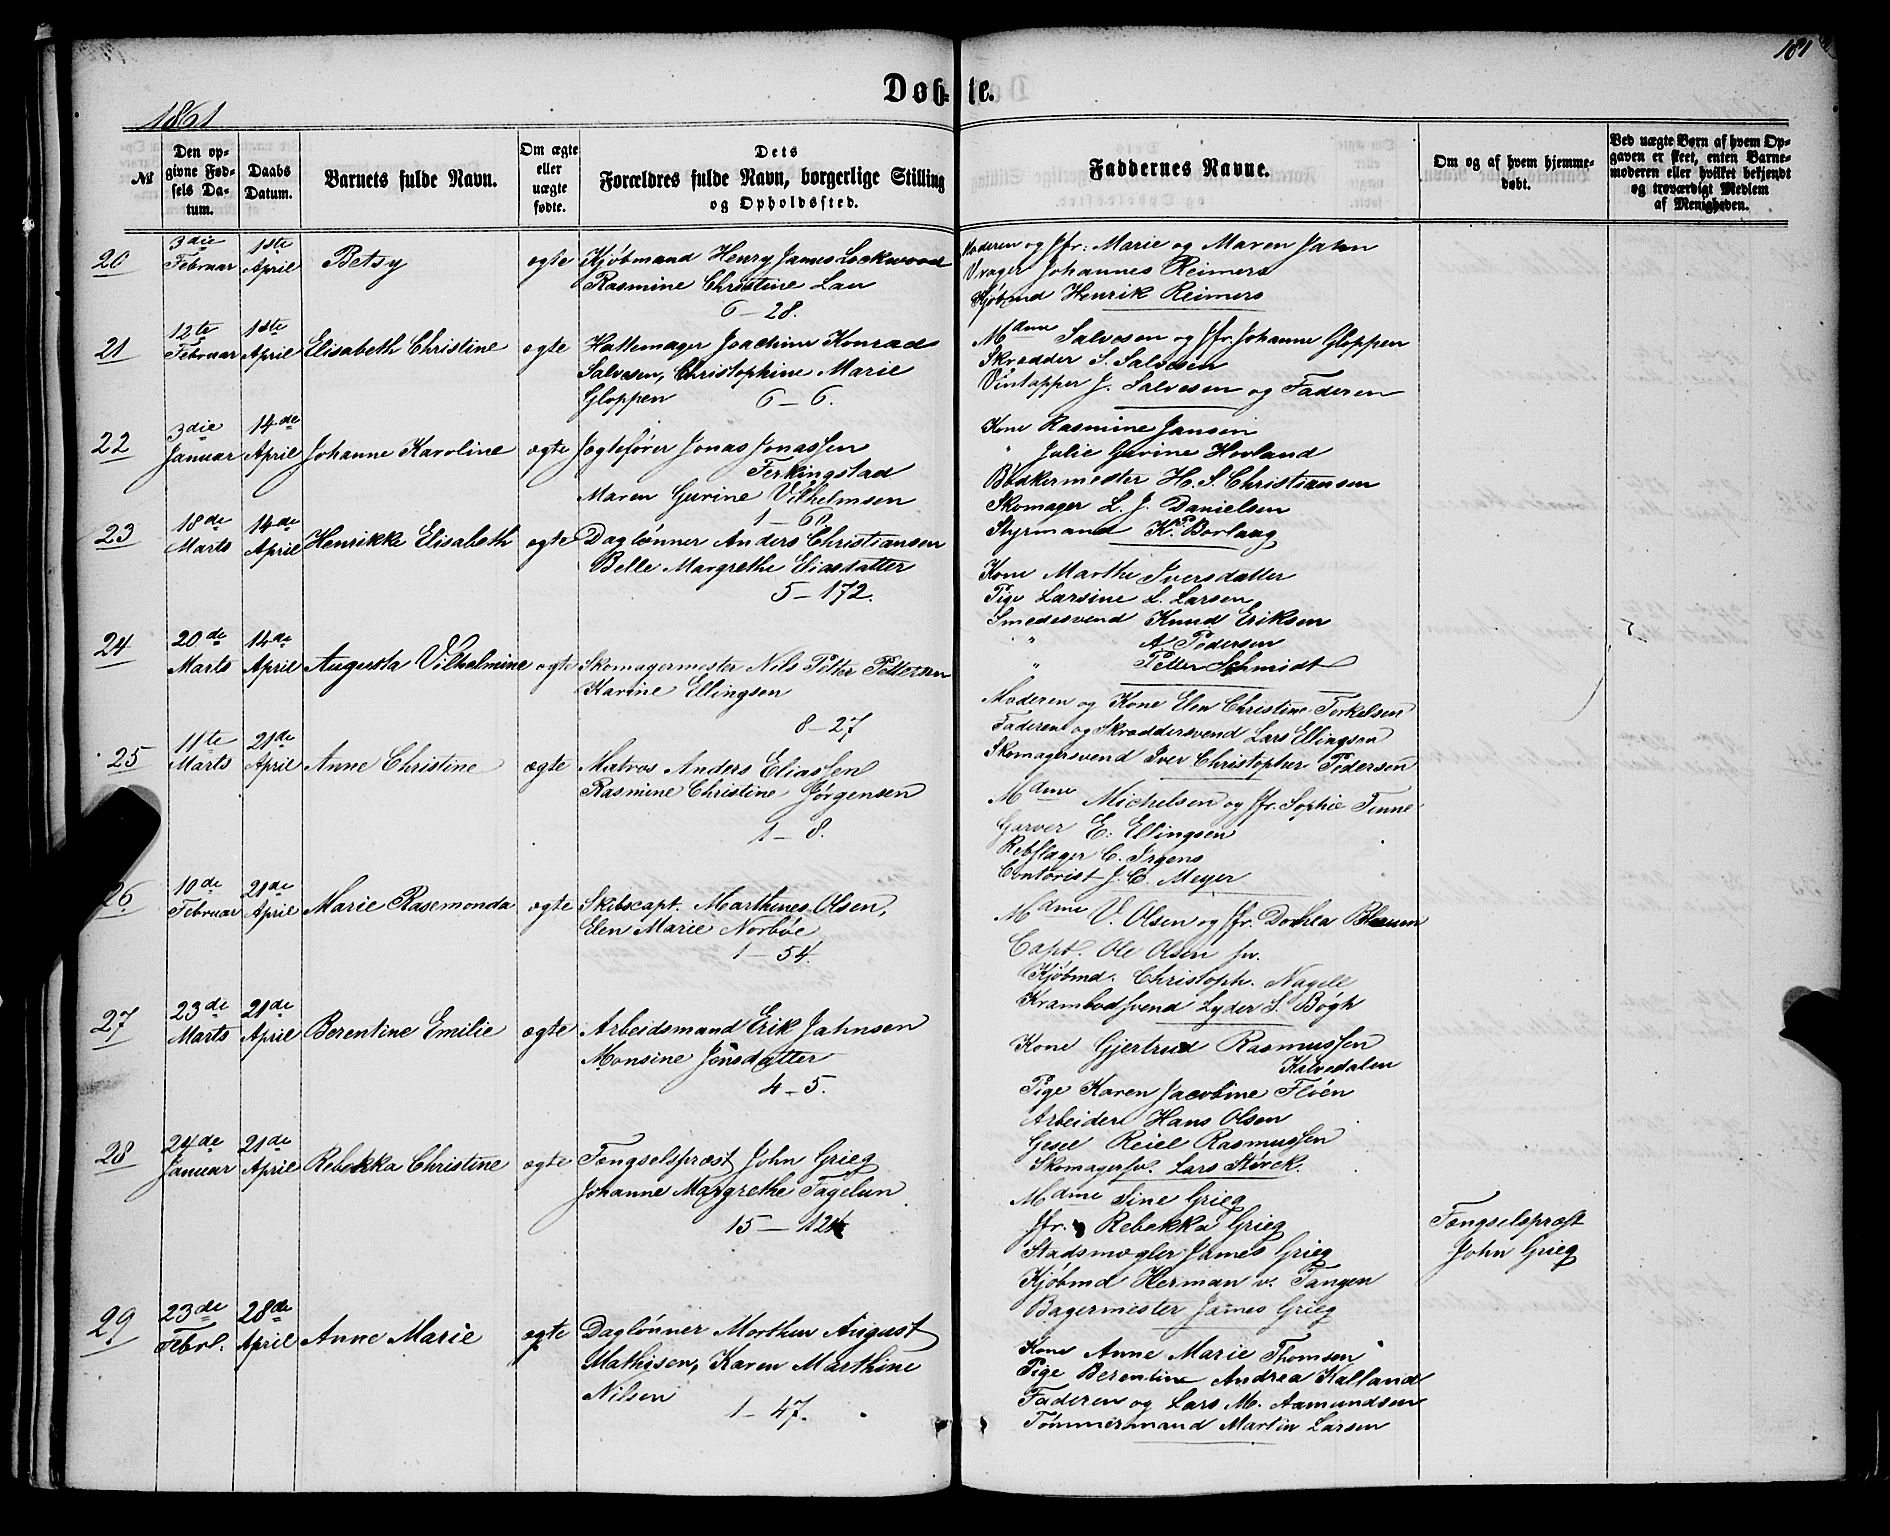 Døb-te.
181
1861
№
Den op-
givne Fød-
sels Da-
tum.
Daabs
Datum.
Barnets fulde Navn.
Om ægte
eller
uægte
fødte.
Dets
Forældres fulde Navn, borgerlige Stilling
og Opholdssted.
Faddernes Navne.
Om og af hvem hjemme-
døbt.
Ved uægte Børn af hvem Op-
gaven er skeet, enten Barne-
moderen eller hvilket bekjendt
og troværdigt Medlem
af Menigheden.
20
3die
Februar
1ste
April
Betsy
ægte
Kjøbmand Henry James Lockwood
Rasmine Christine Lau
6-28.
Moderen og Jfr: Marie og Maren Jahn
Vrager Johannes Reimers
Kjøbmd Henrik Reimers
21
12te
Februar
1ste
April
Elisabeth Christine
ægte
Hattemager Joachim Konrad
Salvesen, Christophine Marie
Gloppen 6-6.
Mdme Salvesen og Jfr. Johanne Gloppen
Skrædder S. Salvesen
Vintapper J. Salvesen og Faderen
22
3die
Januar
14de
April
Johanne Karoline
ægte
Jægtefører Jonas Jonassen
Ferkingstad
Maren Gurine Vilhelmsen
1-60
Kone Rasmine Jansen
" Julie Gurine Hovland
Bødkermester H. S. Christiansen
Skomager L. J. Danielsen
Styrmand K. Borlaug
23
18de
Marts
14de
April
Henrikke Elisabeth
ægte
Daglønner Anders Christiansen
Belle Margrethe Eliasdatter
5-172.
Kone Marthe Iversdatter
Pige Larsine L. Larsen
Smedesvend Knud Eriksen
" A. Pedersen
" Petter Schmidt
24
20de
Marts
14de
April
Augusta Vilhelmine
ægte
Skomagermester Nils Petter Pettersen
Karine Ellingsen
8-27
Moderen og Kone Elen Christine Torkelsen
Faderen og Skræddersvend Lars Ellingsen
Skomagersvend Iver Christopher Pedersen
25
11te
Marts
21de
April
Anne Christine
ægte
Matros Anders Eliassen
Rasmine Christine Jørgensen
1-8.
Mdme Michelsen og Jfr. Sophie Tinne
Garver E: Ellingsen
Rebslager C. Irgens
Contorist J. C. Meyer
26
10de
Februar
21de
April
Marie Rasemonda
ægte
Skibscapt. Marthines Olsen,
Elen Marie Norbøe
1-54.
Mdme V. Olsen og Jfr. Dorhea Blaum
Capt. Ole Olsen sr.
Kjøbmd. Christoph. Nagell
Krambodsvend Lyder S. Bøgh
27
23de
Marts
21de
April
Berentine Emilie
ægte
Arbeidsmand Erik Jahnsen
Monsine Jensdatter
4-5.
Kone Gjertrud Rasmussen
Kalvedalen
Pige Karen Jacobine Fløen
Arbeider Hans Olsen
Gesel Reiel Rasmussen
Skomagersv. Lars Størck.
28
24de
Januar
21de
April
Rebekka Christine
ægte
Fængselspræst John Grieg
Johanne Margrethe Fagelun
15-124
Mdme Sine Grieg
Jfr. Rebekka Grieg
Stadsmægler James Grieg
Kjøbmd Herman v. Tangen
Bagermester James Grieg
Fængselspræst
John Grieg
29
23de
Febrl.
28de
April
Anne Marie
ægte
Daglønner Morthen August
Mathisen, Karen Marthine
Nilsen
1-47.
Kone Anne Marie Thomsen
Pige Berentine Andrea Kalland
Faderen og Lars M. Aamundsen
Tømmermand Martin Larsen